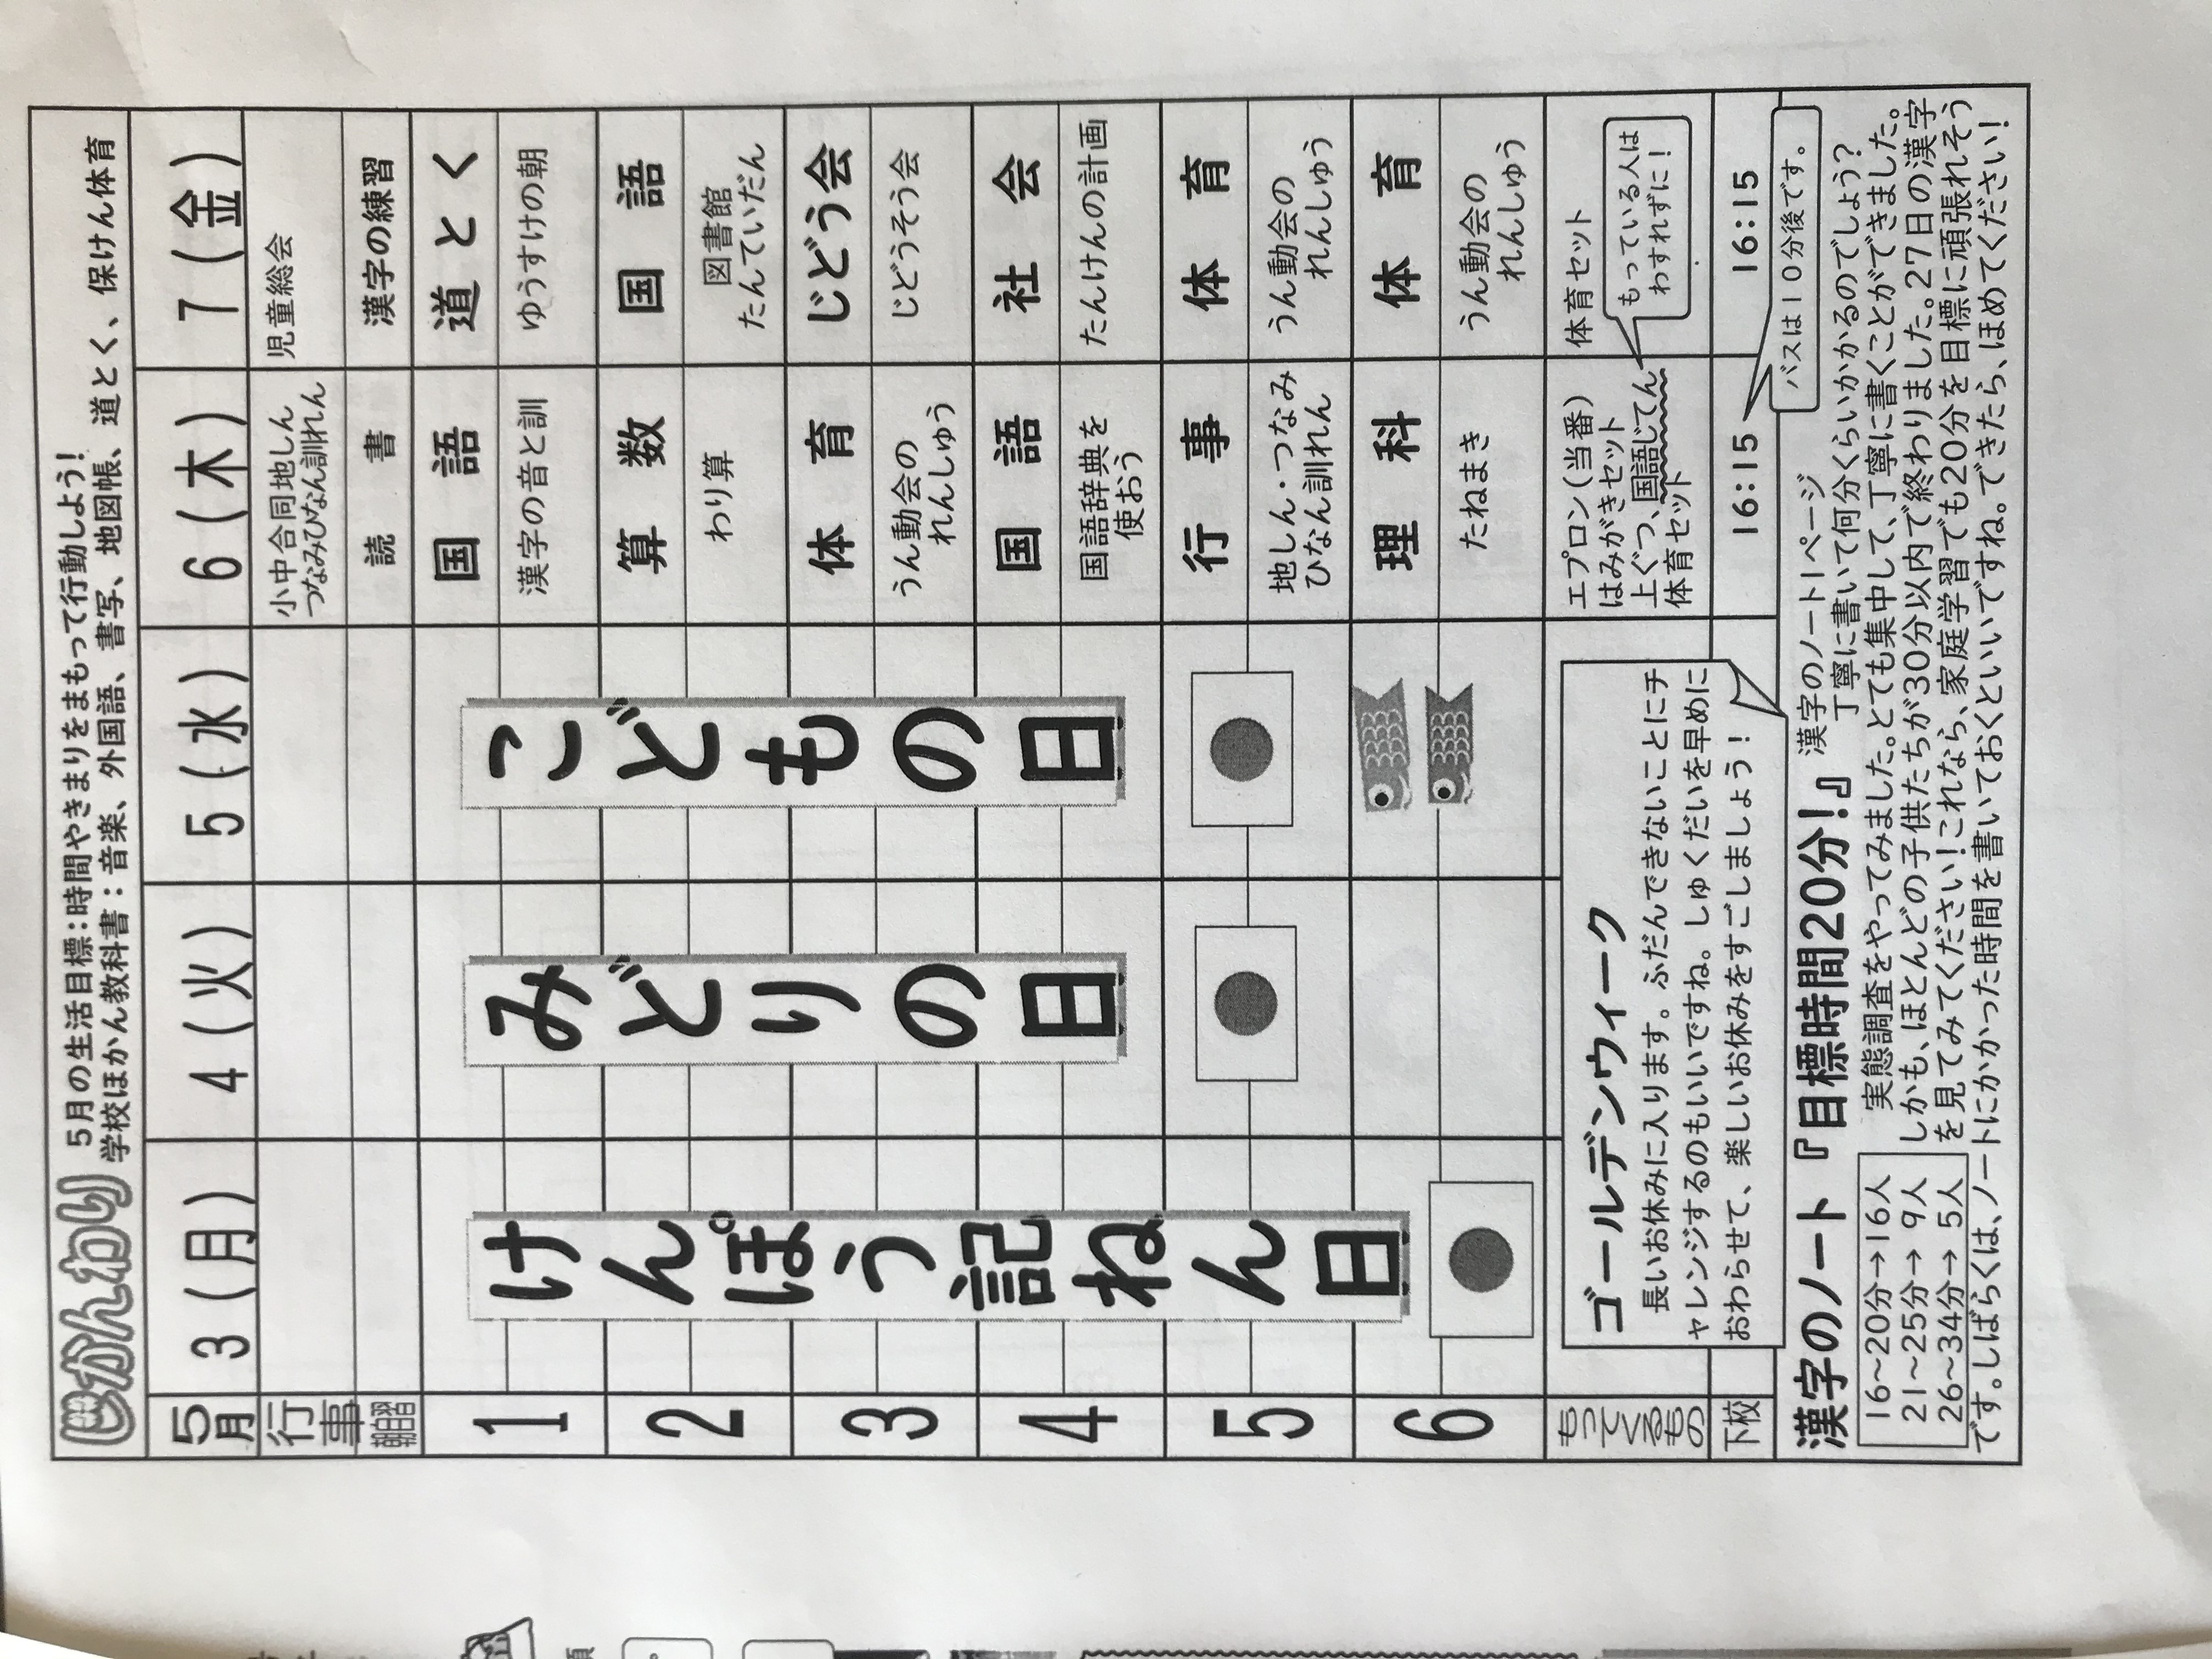 じかんわり
5月の生活目標：時間やきまりをまもって行動しよう！
学校ほかん教科書：音楽、外国語、書写、地図帳、道とく、保けん体育
5月 3(月) 4(火) 5(水) 6(木) 7(金)
行事
小中合同地しん
つなみひなん訓れん
児童総会
朝自習 読書 漢字の練習
1 国語 道とく
漢字の音と訓 ゆうすけの朝
2 算数 国語
わり算
図書館
たんていだん
3 体育 じどう会
うん動会の
れんしゅう
じどうそう会
4 国語 社会
国語辞典を
使おう
たんけんの計画
5 行事 体育
地しん・つなみ
ひなん訓れん
うん動会の
れんしゅう
6 理科 体育
たねまき
うん動会の
れんしゅう
けんぽう記ねん日
みどりの日
こどもの日
もってくるもの
エプロン(当番)
はみがきセット
上ぐつ、国語じてん
体育セット
体育セット
もっている人は
わすれずに！
下校 16:15 16:15
バスは10分後です。
ゴールデンウィーク
長いお休みに入ります。ふだんできないことにチ
ャレンジするのもいいですね。しゅくだいを早めに
おわらせて、楽しいお休みをすごしましょう！
漢字のノート『目標時間20分！』
漢字のノート1ページ
丁寧に書いて何分くらいかかるのでしょう？
実態調査をやってみました。とても集中して、丁寧に書くことができました。
しかも、ほとんどの子供たちが30分以内で終わりました。27日の漢字
を見てみてください！これなら、家庭学習でも20分を目標に頑張れそう
です。しばらくは、ノートにかかった時間を書いておくといいですね。できたら、ほめてください！
16～20分→16人
21～25分→ 9人
26～34分→ 5人